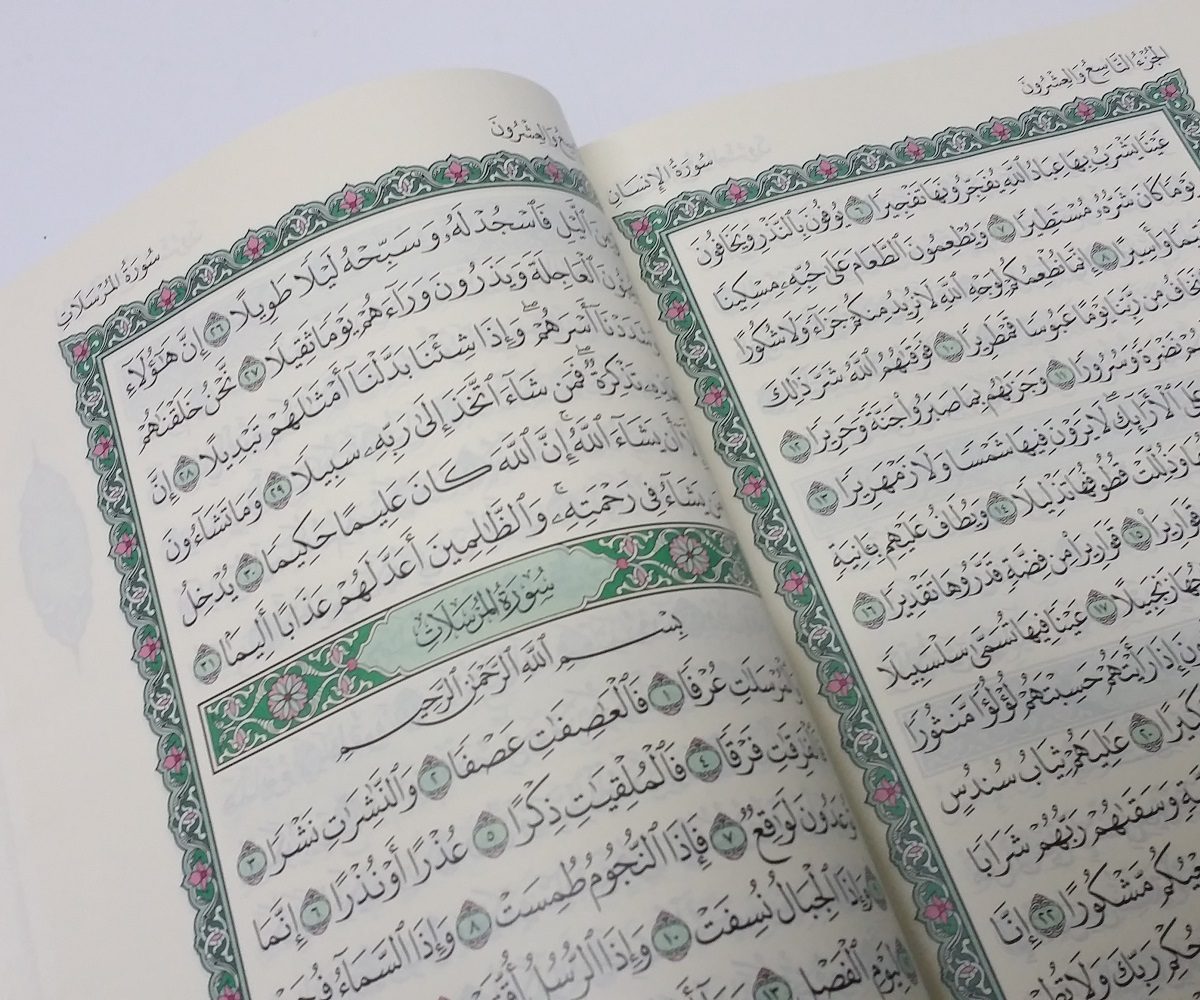 الجُزْءُ التَّاسِعُ وَالعِشْرُونَ
سُورَةُ الإِنسَان
عَيْنًا يَشْرَبُ بِهَا عِبَادُ ٱللَّهِ يُفَجِّرُونَهَا تَفْجِيرًا ٦ يُوفُونَ بِٱلنَّذْرِ وَيَخَافُونَ
يَوْمًا كَانَ شَرُّهُۥ مُسْتَطِيرًا ٧ وَيُطْعِمُونَ ٱلطَّعَامَ عَلَىٰ حُبِّهِۦ مِسْكِينًا
وَأَسِيرًا ٨ إِنَّمَا نُطْعِمُكُمْ لِوَجْهِ ٱللَّهِ لَا نُرِيدُ مِنكُمْ جَزَآءً وَلَا شُكُورًا
مِن رَّبِّنَا يَوْمًا عَبُوسًا قَمْطَرِيرًا ١٠ فَوَقَىٰهُمُ ٱللَّهُ شَرَّ ذَٰلِكَ
نَضْرَةً وَسُرُورًا ١١ وَجَزَىٰهُم بِمَا صَبَرُوا۟ جَنَّةً وَحَرِيرًا ١٢
ٱلْأَرَآئِكِ لَا يَرَوْنَ فِيهَا شَمْسًا وَلَا زَمْهَرِيرًا ١٣
وَذُلِّلَتْ قُطُوفُهَا تَذْلِيلًا ١٤ وَيُطَافُ عَلَيْهِم بِـَٔانِيَةٍ
قَوَارِيرَا۠ ١٥ قَوَارِيرَا۟ مِن فِضَّةٍ قَدَّرُوهَا تَقْدِيرًا ١٦
زَنجَبِيلًا ١٧ عَيْنًا فِيهَا تُسَمَّىٰ سَلْسَبِيلًا
إِذَا رَأَيْتَهُمْ حَسِبْتَهُمْ لُؤْلُؤًا مَّنثُورًا
كَبِيرًا ٢٠ عَٰلِيَهُمْ ثِيَابُ سُندُسٍ
وَسَقَىٰهُمْ رَبُّهُمْ شَرَابًا
مَّشْكُورًا ٢٢ إِنَّا
رَبِّكَ وَلَا
وَالعِشْرُونَ
سُورَةُ المُرْسَلَات
ٱلَّيْلِ فَٱسْجُدْ لَهُۥ وَسَبِّحْهُ لَيْلًا طَوِيلًا ٢٦ إِنَّ هَٰٓؤُلَآءِ
ٱلْعَاجِلَةَ وَيَذَرُونَ وَرَآءَهُمْ يَوْمًا ثَقِيلًا ٢٧ نَّحْنُ خَلَقْنَٰهُمْ
وَشَدَدْنَآ أَسْرَهُمْ ۖ وَإِذَا شِئْنَا بَدَّلْنَآ أَمْثَٰلَهُمْ تَبْدِيلًا ٢٨ إِنَّ
تَذْكِرَةٌ ۖ فَمَن شَآءَ ٱتَّخَذَ إِلَىٰ رَبِّهِۦ سَبِيلًا ٢٩ وَمَا تَشَآءُونَ
أَن يَشَآءَ ٱللَّهُ ۚ إِنَّ ٱللَّهَ كَانَ عَلِيمًا حَكِيمًا ٣٠ يُدْخِلُ
يَشَآءُ فِى رَحْمَتِهِۦ ۚ وَٱلظَّٰلِمِينَ أَعَدَّ لَهُمْ عَذَابًا أَلِيمًۢا ٣١
سُورَةُ المُرْسَلَات
بِسْمِ ٱللَّهِ ٱلرَّحْمَٰنِ ٱلرَّحِيمِ
وَٱلْمُرْسَلَٰتِ عُرْفًا ١ فَٱلْعَٰصِفَٰتِ عَصْفًا ٢ وَٱلنَّٰشِرَٰتِ نَشْرًا ٣
فَٱلْفَٰرِقَٰتِ فَرْقًا ٤ فَٱلْمُلْقِيَٰتِ ذِكْرًا ٥ عُذْرًا أَوْ نُذْرًا ٦ إِنَّمَا
تُوعَدُونَ لَوَٰقِعٌ ٧ فَإِذَا ٱلنُّجُومُ طُمِسَتْ ٨ وَإِذَا ٱلسَّمَآءُ
وَإِذَا ٱلْجِبَالُ نُسِفَتْ ١٠ وَإِذَا ٱلرُّسُلُ
لِيَوْمِ ٱلْفَصْلِ ١٣